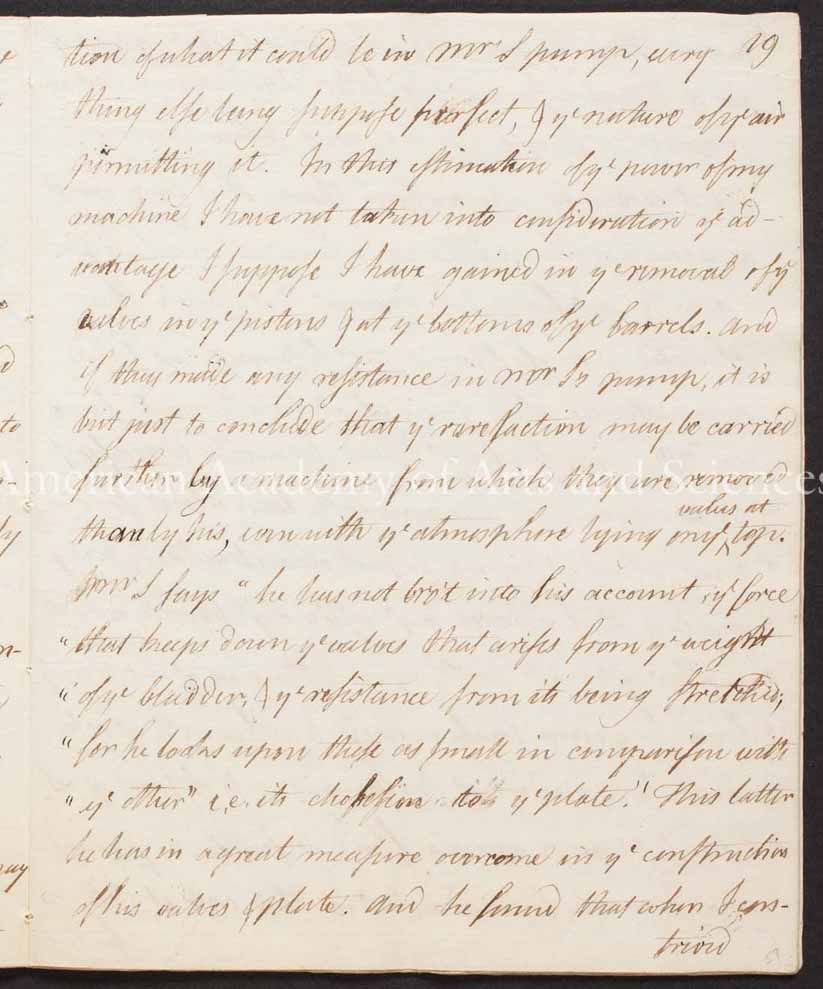 tion of what it could be in Mr S pump, every 19
thing else being suppose perfect, & ye nature of ye air
permitting it. In this estimation of ye power of my
machine I have not taken into consideration ye ad-
vantage I suppose I have gained in ye removal of ye
valves in ye pistons & at ye bottoms of ye barrels. and
if they made any resistance in Mr Ss pump, it is
but just to conclude that ye rarefaction may be carried
further by a machine from which they are removed
American Academy of Arts and Sciences
valves at
than by his, even with ye atmosphere lying on ye ‸ top.
Mr S says "he has not bro't into his account ye force
"that keeps down ye valves that arises from ye weight
"of ye bladder, & ye resistance from its being stretched;
"for he looks upon these as small in comparison with
"ye other" i,e, its cohesion to ye plate." This latter
he has in a great measure overcome in ye construction
of his valves & plate. and he found that when I con-
trived